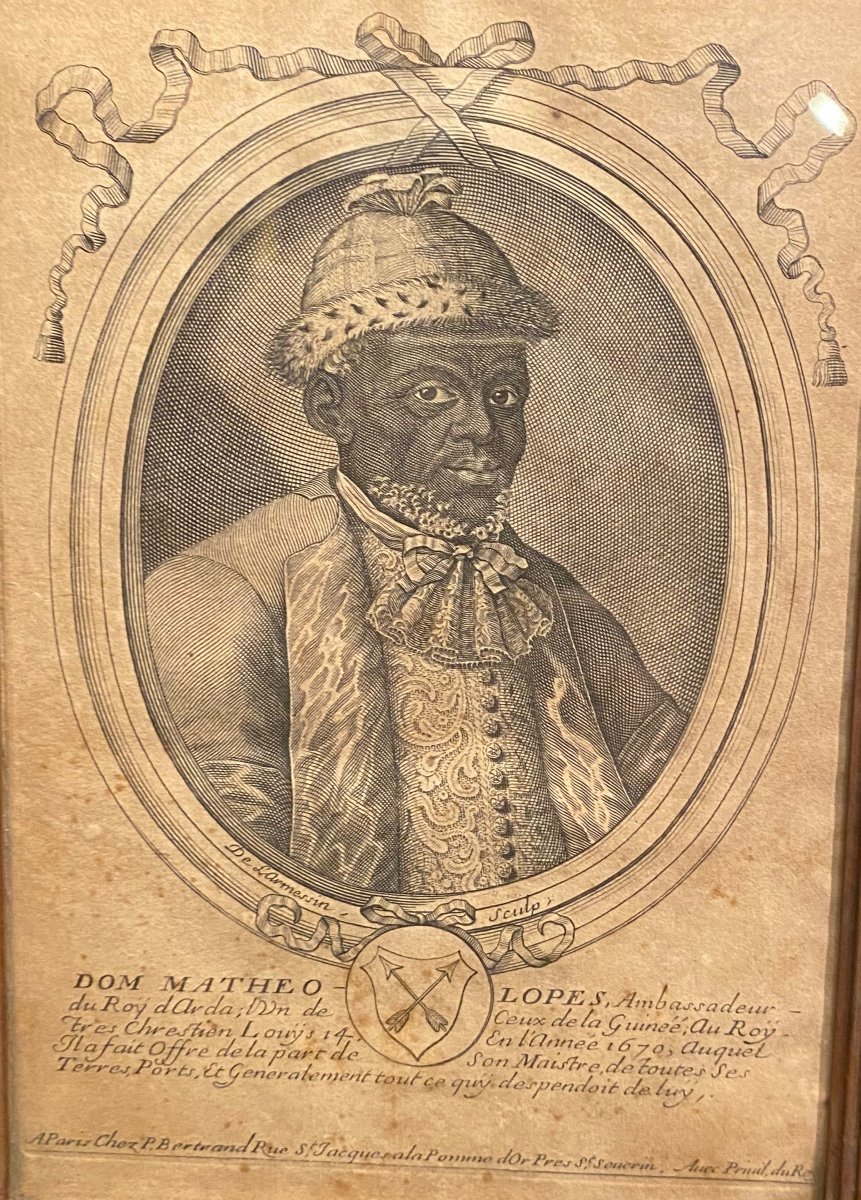 De L'Armessin, Sculp,
DOM MATHEO - LOPES, Ambassadeur -
du Roÿ d'Arda; l'Vn de Ceux de la Guineé; Au Roÿ -
tres Chrestien Louÿs 14. En l'Anneé 1670, auquel
Il a fait Offre de la part de Son Maistre, de toutes Ses
Terres, Ports, Et Generalement tout ce quÿ despendoit de luÿ,.
A Paris Chez P. Bertrand Rue St. Jacques a la Pomme d'Or Pres St. Seuerin. Auec Priuil. du Ro